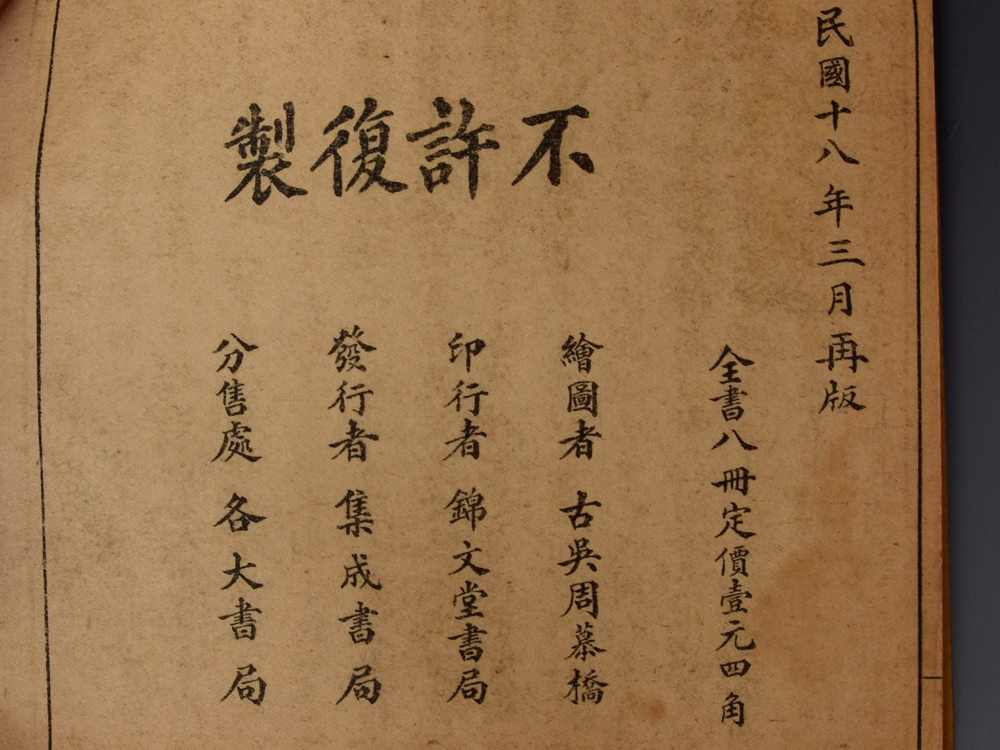 民國十八年三月再版
不許復製
全書八冊定價壹元四角
繪圖者 古吳周慕橋
印行者 錦文堂書局
發行者 集成書局
分售處 各大書局